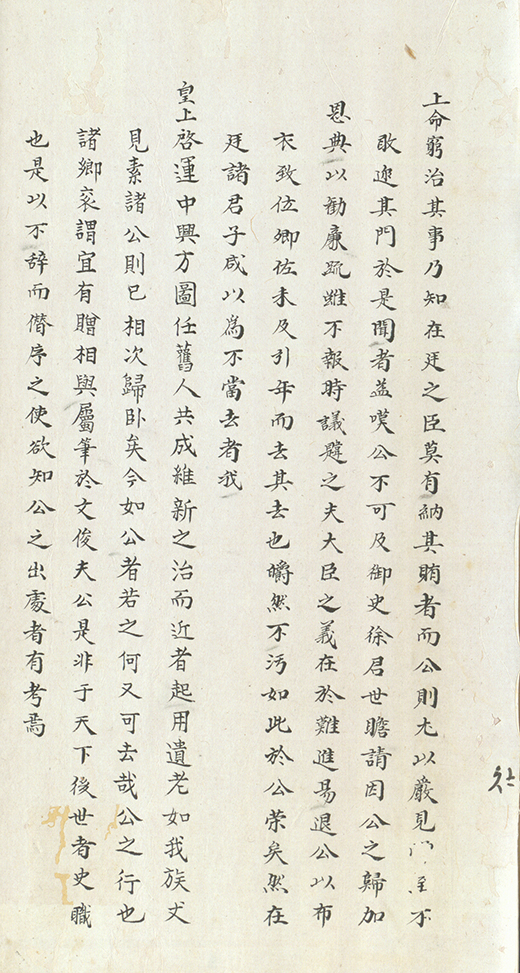 上命窮治其事乃知在廷之臣莫有納其賄者而公則尤以嚴見 至不
敢迹其門於是聞者益嘆公不可及御史徐君世瞻請因公之歸加
恩典以勸廉疏雖不報時議韙之夫大臣之義在於難進易退公以布
衣致位卿佐未及引年而去其去也皭然不污如此於公荣矣然在
廷諸君子咸以為不當去者我
皇上啓運中興方圖任舊人共成維新之治而近者起用遺老如我族丈
見素諸公則已相次歸卧矣今如公者若之何又可去哉公之行也
諸鄉衮謂宜有贈相與屬筆於文俊夫公是非于天下後世者史職
也是以不辞而僭序之使欲知公之出處者有考焉